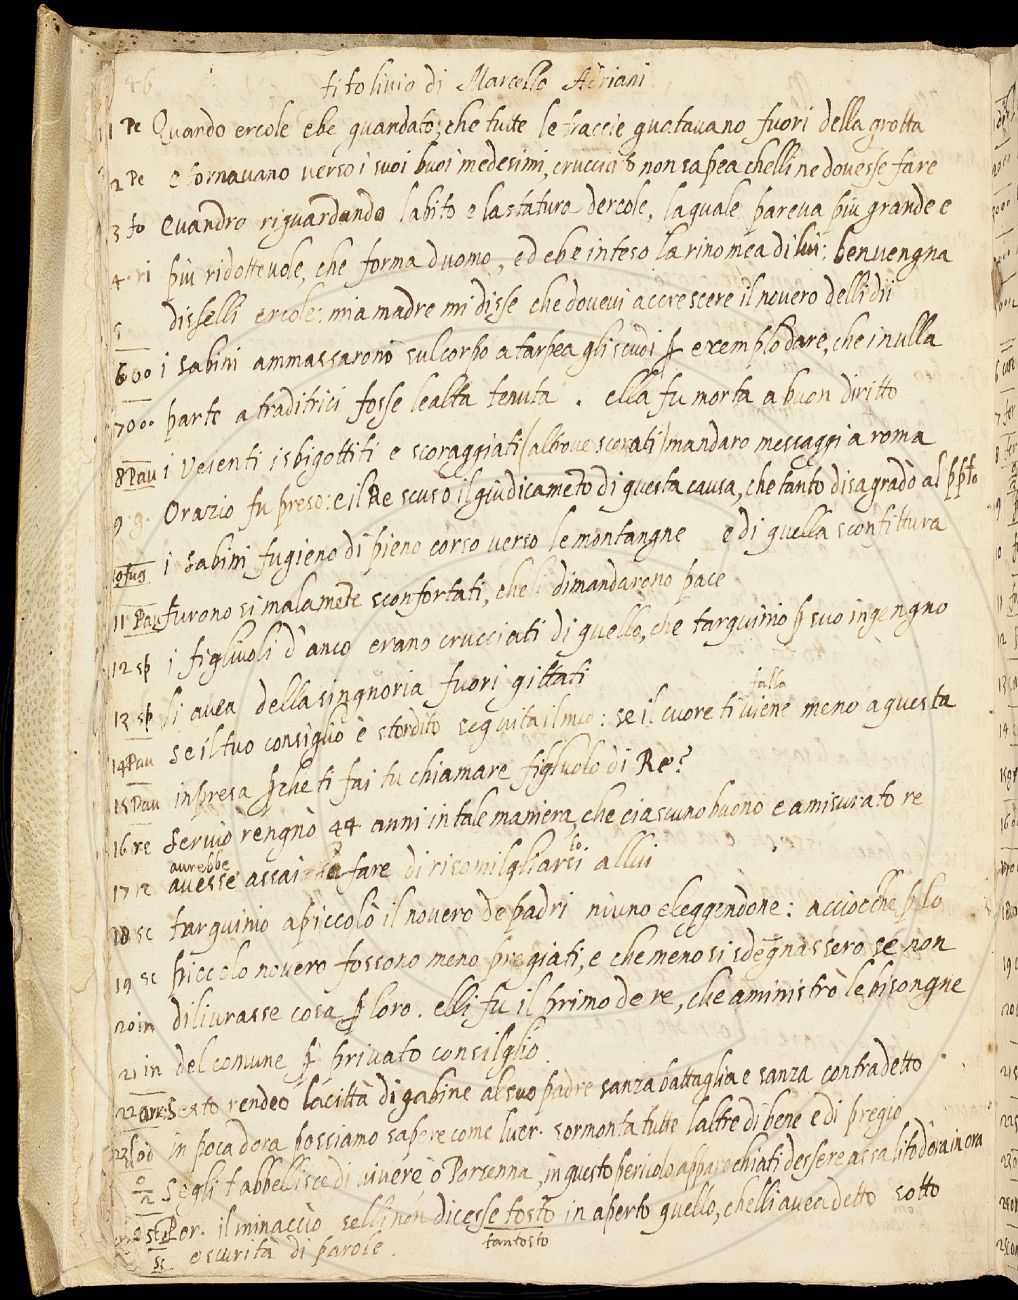 46
tito livio di Marcello Adriani
1 Pe Quando ercole ebe guandato, che tutte le traccie guatavano fuori della grotta
2 Pe e tornavano verso i suoi buoi medesimi, crucciato non sapea chelli ne dovesse fare
3 to Evandro riguardando labito e la statura dercole, laquale pareva più grande e
4 ri più ridottevole, che forma duomo, ed ebe inteso la rinomea di lui: benvengna
5 disselli ercole: mia madre mi disse che dovevi accrescere il novero delli dii
600 i Sabini ammassarono sulcorpo a tarpea gli scudi ꝑ exemplo dare, che in nulla
7000 parte a traditrici fosse lealta tenuta . ella fu morta a buon diritto
8 Pau i Veienti isbigottiti e scoraggiati (altrove scorati) mandaro messaggi a roma
9 g. Orazio fu preso: e il Re scusò il giudicameto di questa causa, che tanto disagradò al pplo
10 fug i Sabini fugieno di pieno corso verso le montangne e di quella sconfittura
11 Pau furono si malamete sconfortati, cheli dimandarono pace
12 sp i figliuoli d'anco erano crucciati di quello, che tarquinio ꝑ suo ingengno
13 sp li avea della singnoria fuori gittati
falla
14 Pau se il tuo consiglio è stordito seguita il mio: se il cuore ti viene meno a questa
15 Pau inpresa ꝑche ti fai tu chiamare figliuolo di Re?
16 re Servio rengnò 44 anni in tale maniera, che ciascuno buono e amisurato re
avrebbe
to
17 re avesse assai a fare di risomilgliarsi allui
18 sc tarquinio apiccolò il novero de padri niuno eleggendone: acciocche ꝑ lo
19 sc piccolo novero fossono meno pregiati, e che meno si sdegnassero se non
20 in diliurasse cosa ꝑ loro. elli fu il primo de re, che aministrò le bisongne
21 in del comune ꝑ privato consilglio.
22 are Sesto rendeo la città di gabine al suo padre sanza battaglia e sanza contradetto
23 lod in poca dora possiamo sapere come lucr. sormonta tutte laltre di bene e di pregio
Segli tabbellisce di vivere ò Porsenna, in questo pericolo apparechiati dessere assalito d'ora in ora
Por. il minacciò selli non dicesse tosto in aperto quello, chelli avea detto sotto
tantosto
sc escurità di parole.